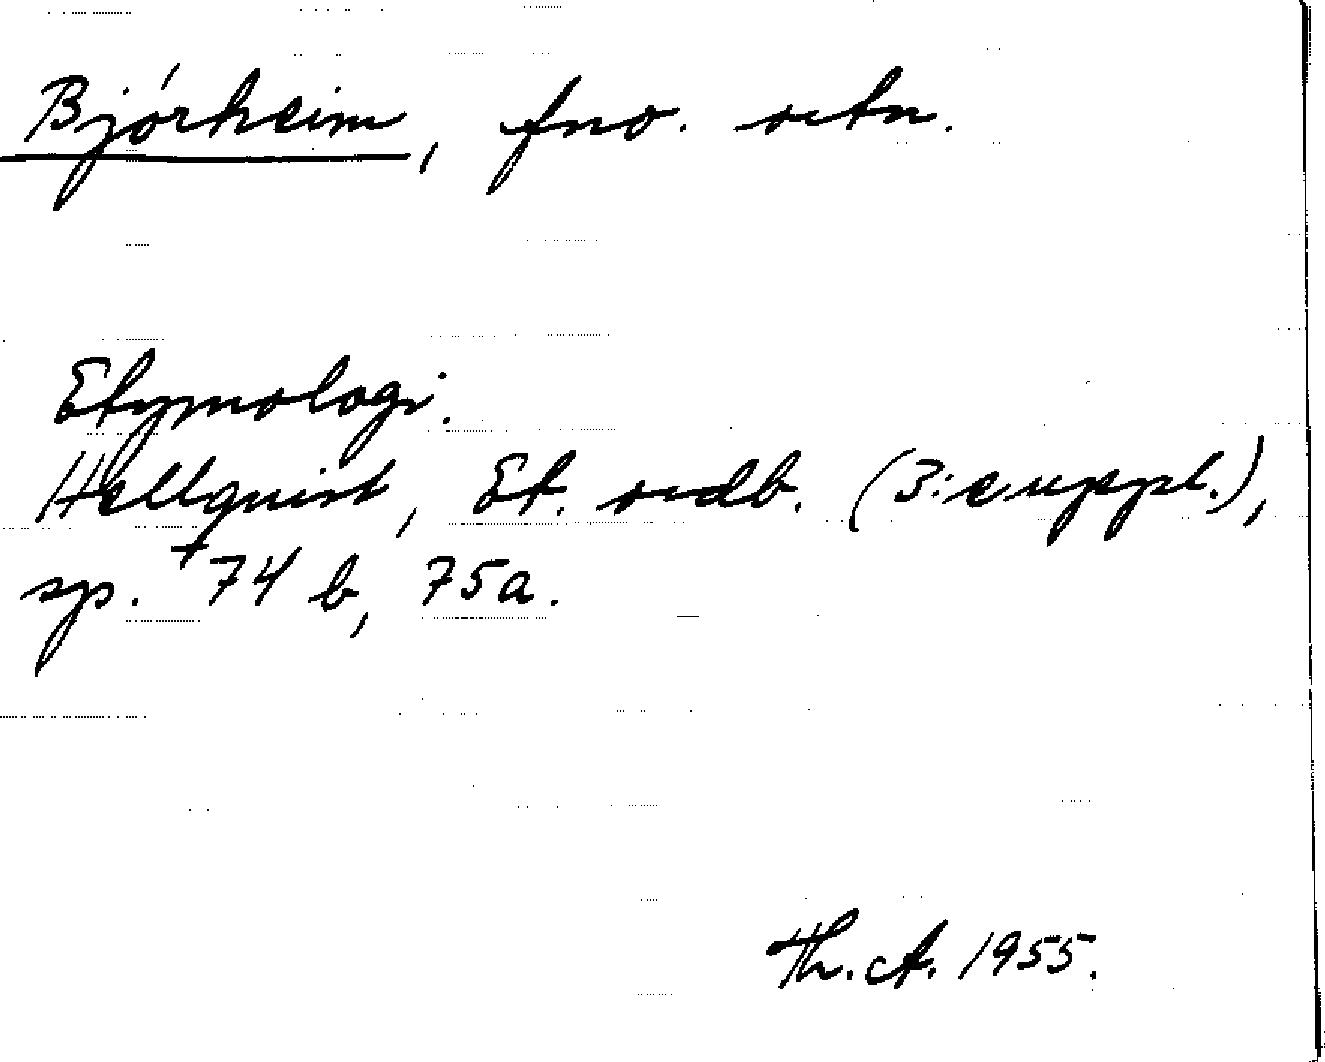 Bjórheim, fno. ortn.
Etymologi.
Hellquist, Et. ordb. (3:e uppl.),
sp. †74 b, 75a.
Th. A. 1955.